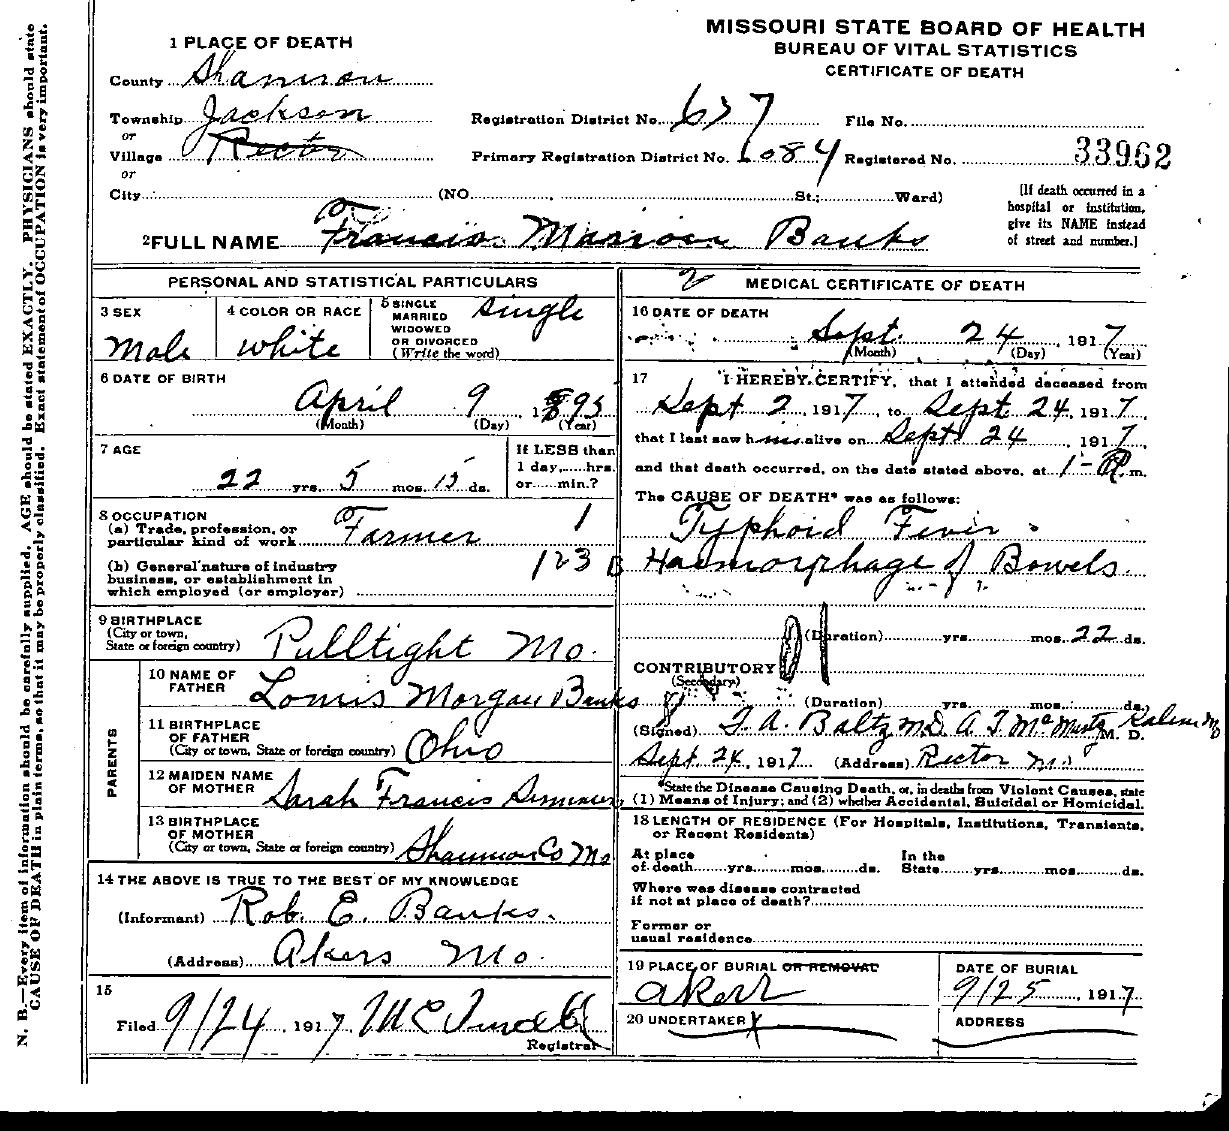 MISSOURI STATE BOARD OF HEALTH
BUREAU OF VITAL STATISTICS
CERTIFICATE OF DEATH
1 PLACE OF DEATH
County Shannon
Township Jackson
or
Village Rector
or
City (NO. St.; Ward)
Registration District No. 637
File No.
Primary Registration District No. 6084
Registered No. 33962
(If death occurred in a
hospital or institution,
give its NAME instead
of street and number.)
2 FULL NAME Francis Marrion Banks
PERSONAL AND STATISTICAL PARTICULARS
3 SEX
Male
4 COLOR OR RACE
White
5 SINGLE
MARRIED
WIDOWED
OR DIVORCED
(Write the word)
Single
6 DATE OF BIRTH
April 9, 1895
(Month) (Day) (Year)
7 AGE
22 yrs. 5 mos. 15 ds.
If LESS than
1 day,......hrs.
or......min.?
8 OCCUPATION
(a) Trade, profession, or
particular kind of work Farmer 1
(b) General nature of industry
business, or establishment in
which employed (or employer)
123 B
9 BIRTHPLACE
(City or town,
State or foreign country) Pulltight Mo.
PARENTS
10 NAME OF
FATHER Lomis Morgan Banks
11 BIRTHPLACE
OF FATHER
(City or town, State or foreign country) Ohio
12 MAIDEN NAME
OF MOTHER Sarah Francis
13 BIRTHPLACE
OF MOTHER
(City or town, State or foreign country) Shannon Co Mo
14 THE ABOVE IS TRUE TO THE BEST OF MY KNOWLEDGE
(Informant) Rob. E. Banks.
(Address) Akers Mo.
15
Filed 9/24, 1917
Registrar
2 MEDICAL CERTIFICATE OF DEATH
16 DATE OF DEATH
Sept. 24, 1917
(Month) (Day) (Year)
17 I HEREBY CERTIFY, that I attended deceased from
Sept 2, 1917, to Sept 24, 1917,
that I last saw him alive on Sept 24, 1917,
and that death occurred, on the date stated above, at 1- P.m.
The CAUSE OF DEATH* was as follows:
Typhoid Fever
Haemorphage of Bowels.
(Duration) yrs. mos. 22 ds.
CONTRIBUTORY
(Secondary)
(Duration) yrs. mos. ds.
(Signed) F. A. Baltz MD. A T. Salem Mo M. D.
Sept 24, 1917 (Address) Rector Mo
*State the Disease Causing Death, or, in deaths from Violent Causes, state
(1) Means of Injury; and (2) whether Accidental, Suicidal or Homicidal.
18 LENGTH OF RESIDENCE (For Hospitals, Institutions, Transients,
or Recent Residents)
At place
of death......yrs......mos......ds.
In the
State......yrs......mos......ds.
Where was disease contracted
if not at place of death?
Former or
usual residence
19 PLACE OF BURIAL OR REMOVAL
DATE OF BURIAL
9/25, 1917
20 UNDERTAKER
ADDRESS
N. B.—Every item of information should be carefully supplied. AGE should be stated EXACTLY. PHYSICIANS should state
CAUSE OF DEATH in plain terms, so that it may be properly classified. Exact statement of OCCUPATION is very important.